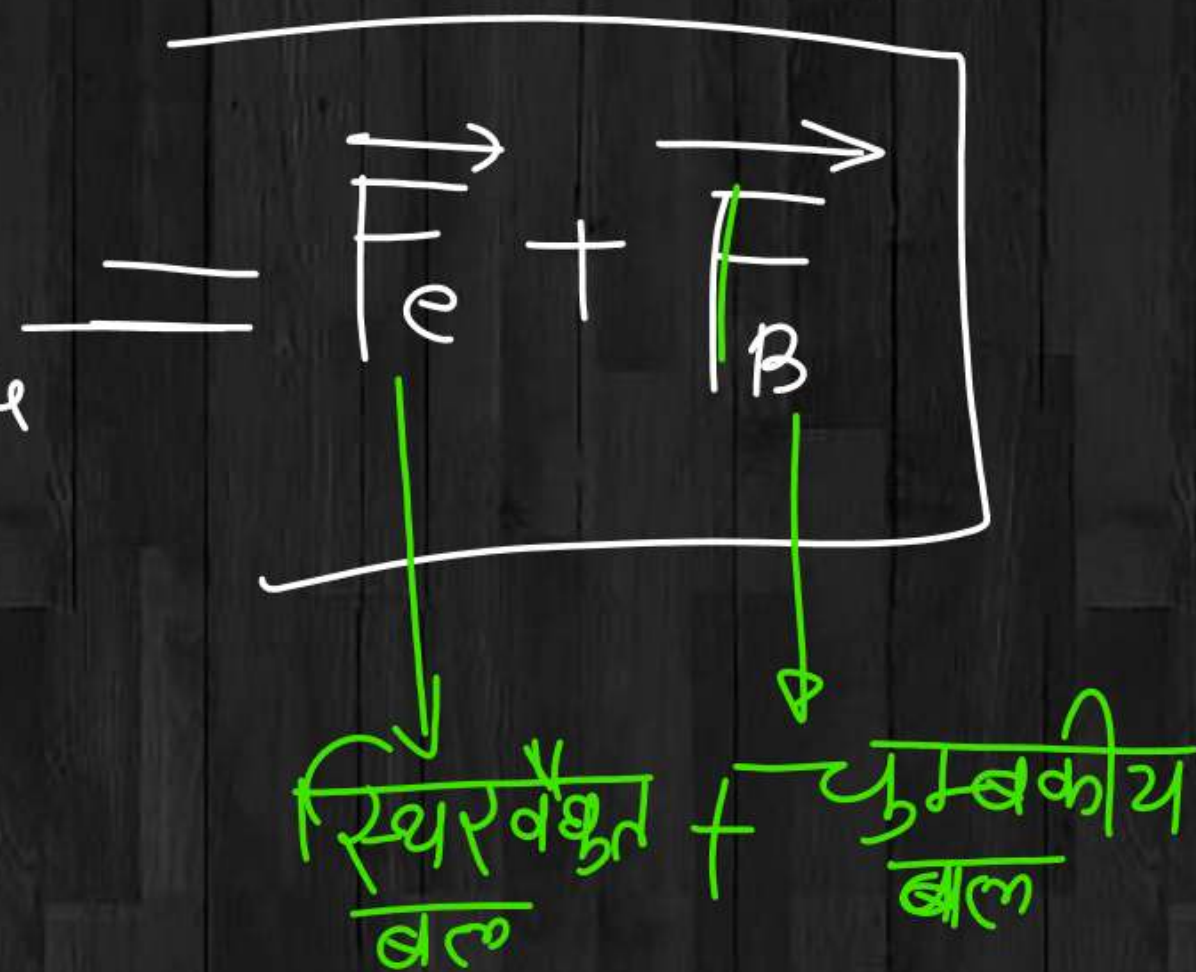 = F⃗e + F⃗B
स्थिरवैद्युत + चुम्बकीय
बल बल